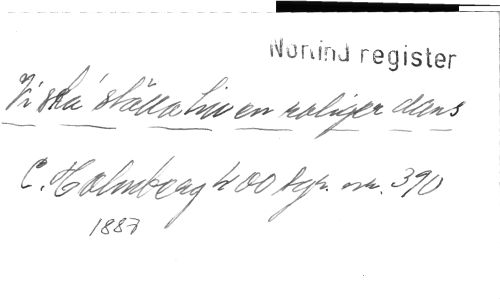 Norlind register
Vi ska' ställa till en roliger dans
C. Holmberg h 00 Sgr. nr. 390
1887